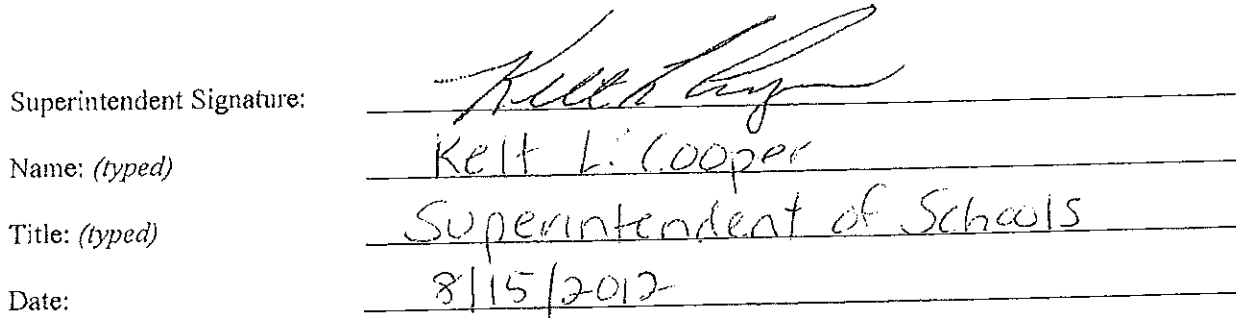 Superintendent Signature: Kelt L Cooper
Name: (typed) Kelt L. Cooper
Title: (typed) Superintendent of Schools
Date: 8/15/2012